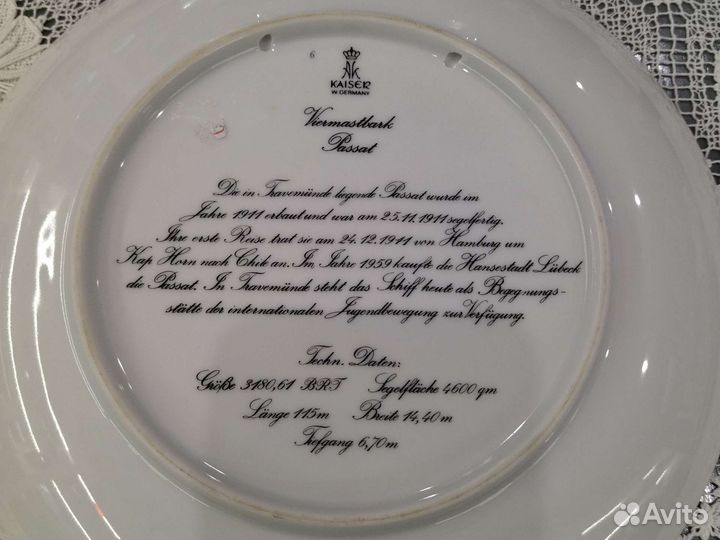 6
KAISER
W. GERMANY
Viermastbark
Passat
Die in Travemünde liegende Passat wurde im
Jahre 1911 erbaut und war am 25.11.1911 segelfertig.
Ihre erste Reise trat sie am 24.12.1911 von Hamburg um
Kap Horn nach Chile an. In Jahre 1959 kaufte die Hansestadt Lübeck
die Passat. In Travemünde steht das Schiff heute als Begegnungs-
stätte der internationalen Jugendbewegung zur Verfügung.
Techn. Daten:
Größe 3180,61 BRT Segelfläche 4600 qm
Länge 115m Breite 14,40m
Tiefgang 6,70m
Avito